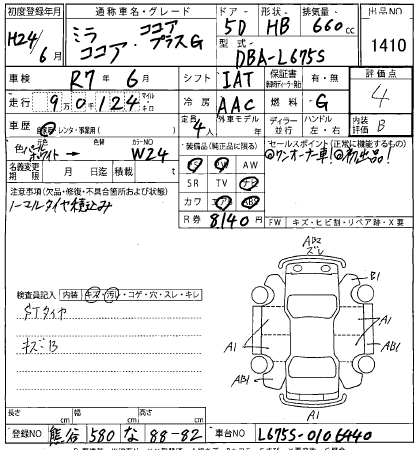 初度登録年月 通称車名・グレード ドア 形状 排気量 出品NO
H24/6月 ミラココア ココア・プラスG 5D HB 660cc 1410
型式 DBA-L675S
車検 R7年6月 シフト IAT 保証書 有・無 評価点
走行 9万0千124 マイル キロ 冷房 AAC 燃料 G 4
車歴 自家用・レンタ・事業用( ) 定員 4人 外車モデル 年 ディーラー 並行 ハンドル 左・右 内装評価 B
元色 パールホワイト → 色替 カラーNO W24
装備品(純正品に限る) セールスポイント(正常に機能するもの)
PS PW AW ◎ワンオーナー車! ◎初出品!
名義変更期限 月 日迄 積載 t
SR TV ナビ
注意事項(欠品・修復・不具合箇所および状態)
カワ エアB ABS
ノーマルタイヤ積込み
R券 8,140円
FW キズ・ヒビ割・リペア跡・X要
AB2
ズレ
B1
検査員記入 内装 キズ・汚レ・コゲ・穴・スレ・キレ
STタイヤ
キズB
A1 A1 AB1
AB1
A1
長さ cm 幅 cm 高さ cm
登録NO 熊谷 580 な 88-82 車台NO L675S-0106440